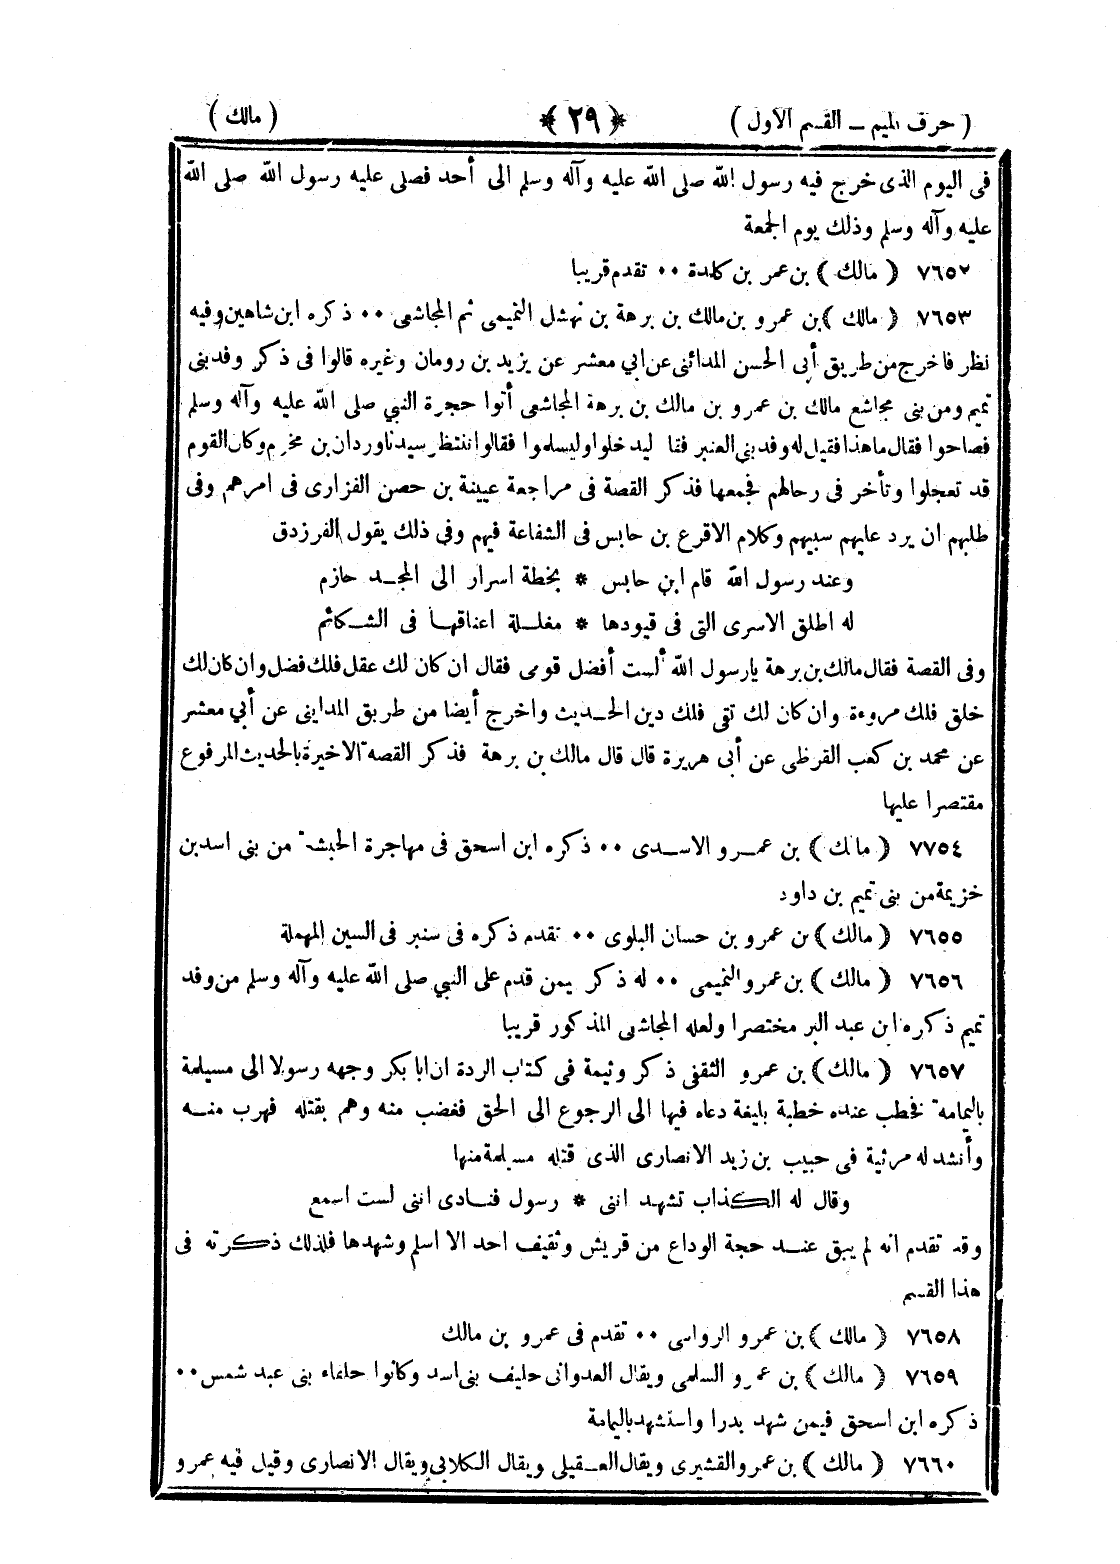 ( حرف الميم ـ القسم الاول ) ﴿ ٢٩ ﴾ ( مالك )
فى اليوم الذى خرج فيه رسول الله صلى الله عليه وآله وسلم الى أحد فصلى عليه رسول الله صلى الله
عليه وآله وسلم وذلك يوم الجمعة
٧٦٥٢ ( مالك ) بن عمر بن كلدة ٠٠ تقدم قريبا
٧٦٥٣ ( مالك ) بن عمرو بن مالك بن برهة بن نهشل التميمى ثم المجاشعى ٠٠ ذكره ابن شاهين وفيه
نظر فاخرج من طريق أبى الحسن المدائنى عن ابي معشر عن يزيد بن رومان وغيره قالوا فى ذكر وفد بنى
تميم ومن بنى مجاشع مالك بن عمرو بن مالك بن برهة المجاشعى أتوا حجرة النبي صلى الله عليه وآله وسلم
فصاحوا فقال ماهذا فقيل له وفد بني العنبر فقا ليدخلوا وليسلموا فقالوا ننتظر سيدنا وردان بن مخرم وكان القوم
قد تعجلوا وتأخر فى رحالهم فجمعها فذكر القصة فى مراجعة عيينة بن حصن الفزارى فى امرهم وفى
طلبهم ان يرد عليهم سبيهم وكلام الاقرع بن حابس فى الشفاعة فيهم وفى ذلك يقول الفرزدق
وعند رسول الله قام ابن حابس * بخطة اسرار الى المجد حازم
له اطلق الاسرى التى فى قيودها * مغللة اعناقها فى الشكائم
وفى القصة فقال مالك بن برهة يارسول الله ألست أفضل قومى فقال ان كان لك عقل فلك فضل وان كان لك
خلق فلك مروءة وان كان لك تقى فلك دين الحديث واخرج أيضا من طريق المداينى عن أبي معشر
عن محمد بن كعب القرظى عن أبى هريرة قال قال مالك بن برهة فذكر القصة الاخيرة بالحديث المرفوع
مقتصرا عليها
٧٧٥٤ ( مالك ) بن عمرو الاسدى ٠٠ ذكره ابن اسحق فى مهاجرة الحبشة من بنى اسد بن
خزيمة من بنى تميم بن داود
٧٦٥٥ ( مالك ) بن عمرو بن حسان البلوى ٠٠ تقدم ذكره فى سنبر فى السين المهملة
٧٦٥٦ ( مالك ) بن عمرو التميمى ٠٠ له ذكر يمن قدم على النبي صلى الله عليه وآله وسلم من وفد
تميم ذكره ابن عبد البر مختصرا ولعله المجاشى المذكور قريبا
٧٦٥٧ ( مالك ) بن عمرو الثقفى ذكر وثيمة فى كتاب الردة ان ابا بكر وجهه رسولا الى مسيلمة
باليمامة فخطب عنده خطبة بليغة دعاه فيها الى الرجوع الى الحق فغضب منه وهم بقتله فهرب منه
وأنشد له مرثية فى حبيب بن زيد الانصارى الذى قتله مسيلمة منها
وقال له الكذاب تشهد اننى * رسول فنادى اننى لست اسمع
وقد تقدم انه لم يبق عند حجة الوداع من قريش وثقيف احد الا اسلم وشهدها فلذلك ذكرته فى
هذا القسم
٧٦٥٨ ( مالك ) بن عمرو الرواسى ٠٠ تقدم فى عمرو بن مالك
٧٦٥٩ ( مالك ) بن عمرو السلمى ويقال العدوانى حليف بنى اسد وكانوا حلفاء بنى عبد شمس ٠٠
ذكره ابن اسحق فيمن شهد بدرا واستشهد باليمامة
٧٦٦٠ ( مالك ) بن عمرو القشيرى ويقال العقيلى ويقال الكلابي ويقال الانصارى وقيل فيه عمرو